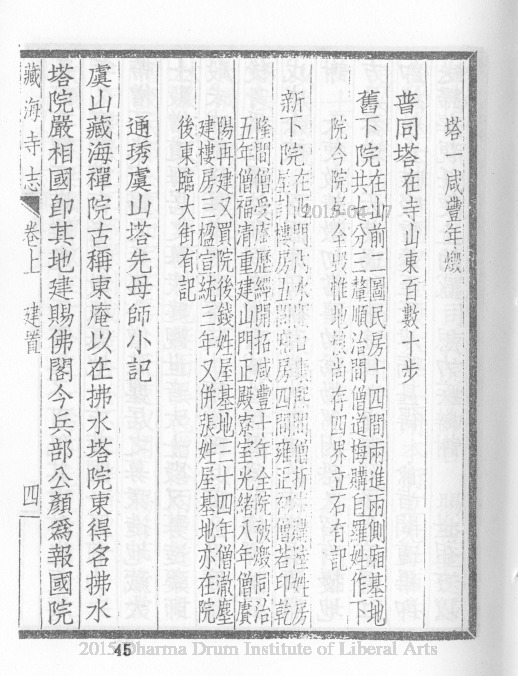 塔一咸豐年燬
普同塔在寺山東百數十步
舊下院在山前二圖民房十四間兩進兩側廂基地
共七分三釐順治間僧道梅購自羅姓作下
院今院房全毀惟地基尚存四界立石有記
新下院在西門內水
間僧
姓房
屋計樓房五間
房四間雍正
僧若印乾
隆間僧受
歷經開拓咸豐十年全院被燬同治
五年僧福清重建山門正殿寮室光緒八年僧賡
陽再建又買院後錢姓屋基地三十四年僧澈塵
建樓房三楹宣統三年又併張姓屋基地亦在院
後東臨大街有記
通琇虞山塔先母師小記
虞山藏海禪院古稱東庵以在拂水塔院東得名拂水
塔院嚴相國卽其地建賜佛閣今兵部公顏爲報國院
藏海寺志
卷上
建置
四
45
2015-04-17
2015 Dharma Drum Institute of Liberal Arts